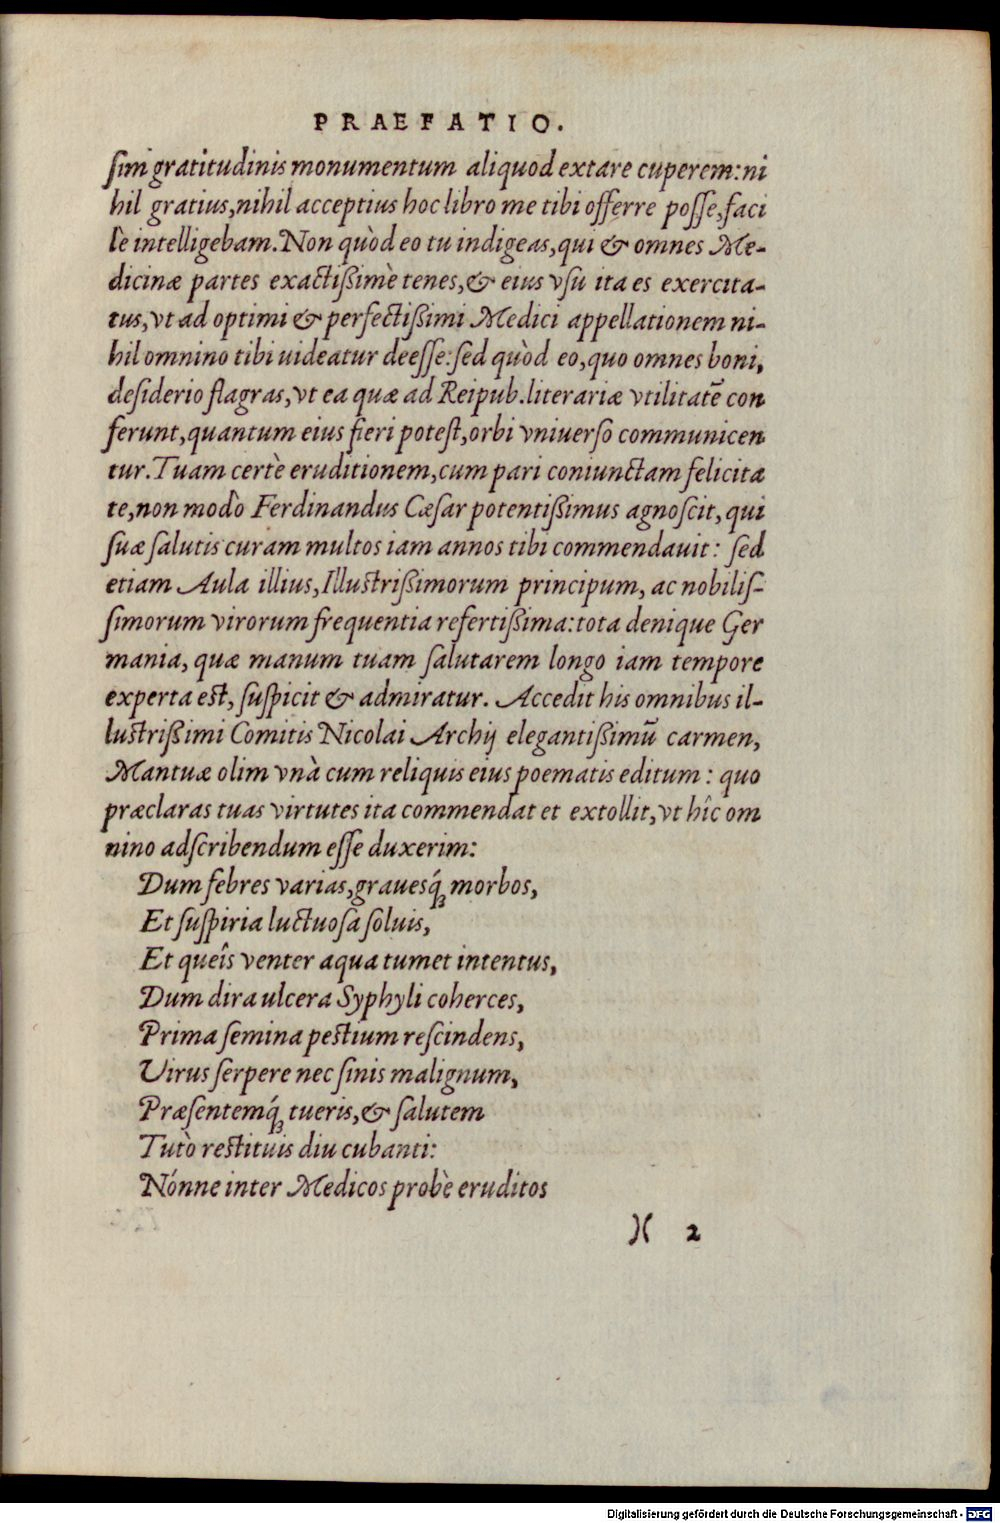 PRAEFATIO.
ſimi gratitudinis monumentum aliquod extare cuperem: ni
hil gratius, nihil acceptius hoc libro me tibi offerre poſſe, faci
lè intelligebam. Non quòd eo tu indigeas, qui & omnes Me-
dicinæ partes exactißimè tenes, & eius vſu ita es exercita-
tus, vt ad optimi & perfectißimi Medici appellationem ni-
hil omnino tibi uideatur deeſſe: ſed quòd eo, quo omnes boni,
deſiderio flagras, vt ea quæ ad Reipub. literariæ vtilitatē con
ferunt, quantum eius fieri poteſt, orbi vniuerſo communicen
tur. Tuam certè eruditionem, cum pari coniunctam felicita
te, non modò Ferdinandus Cæſar potentißimus agnoſcit, qui
ſuæ ſalutis curam multos iam annos tibi commendauit: ſed
etiam Aula illius, Illuſtrißimorum principum, ac nobiliſ-
ſimorum virorum frequentia refertißima: tota denique Ger
mania, quæ manum tuam ſalutarem longo iam tempore
experta eſt, ſuſpicit & admiratur. Accedit his omnibus il-
luſtrißimi Comitis Nicolai Archij elegantißimū carmen,
Mantuæ olim vnà cum reliquis eius poematis editum: quo
præclaras tuas virtutes ita commendat et extollit, vt hîc om
nino adſcribendum eſſe duxerim:
Dum febres varias, grauesq́ʒ morbos,
Et ſuſpiria luctuoſa ſoluis,
Et queîs venter aqua tumet intentus,
Dum dira ulcera Syphyli coherces,
Prima ſemina peſtium reſcindens,
Virus ſerpere nec ſinis malignum,
Præſentemq́ʒ tueris, & ſalutem
Tutò reſtituis diu cubanti:
Nónne inter Medicos probè eruditos
)( 2
Digitalisierung gefördert durch die Deutsche Forschungsgemeinschaft - DFG